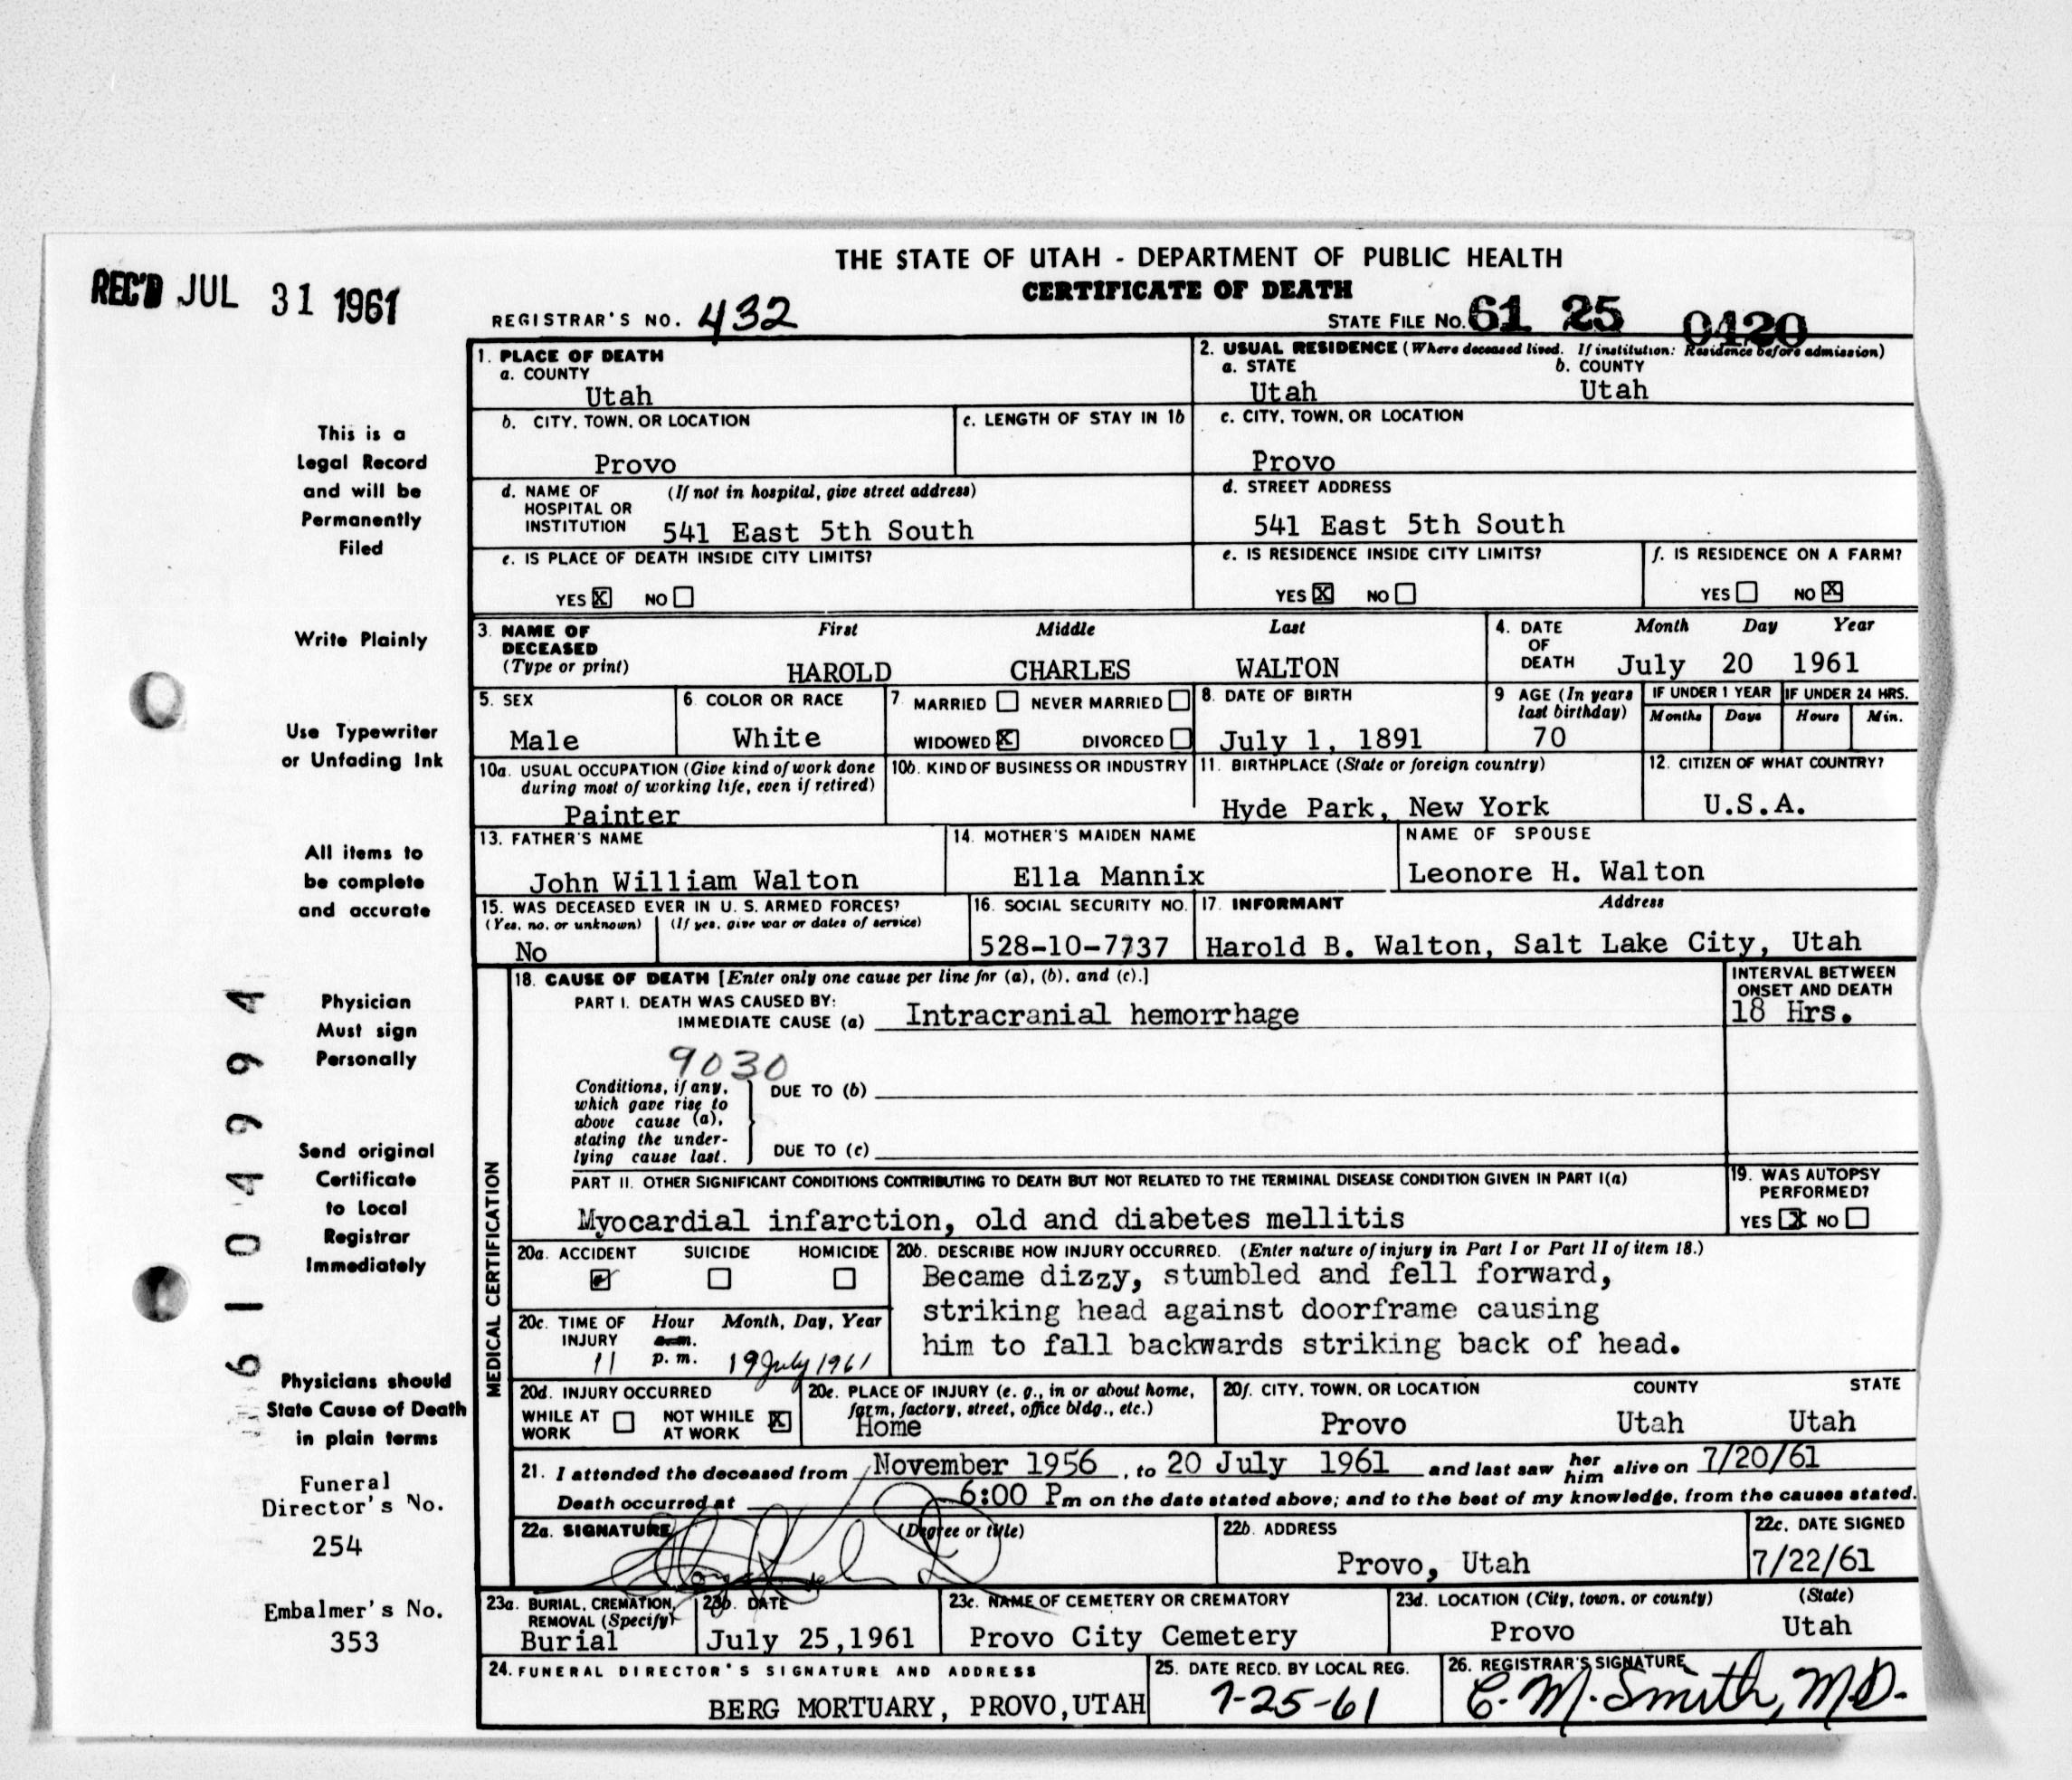 THE STATE OF UTAH - DEPARTMENT OF PUBLIC HEALTH
CERTIFICATE OF DEATH
REC'D JUL 31 1961
REGISTRAR'S NO. 432
STATE FILE No. 61 25 0420
This is a
Legal Record
and will be
Permanently
Filed
Write Plainly
Use Typewriter
or Unfading Ink
All items to
be complete
and accurate
Physician
Must sign
Personally
Send original
Certificate
to Local
Registrar
Immediately
Physicians should
State Cause of Death
in plain terms
Funeral
Director's No.
254
Embalmer's No.
353
6104994
1. PLACE OF DEATH
a. COUNTY
Utah
2. USUAL RESIDENCE (Where deceased lived. If institution: Residence before admission)
a. STATE b. COUNTY
Utah Utah
b. CITY, TOWN, OR LOCATION
Provo
c. LENGTH OF STAY IN 1b
c. CITY, TOWN, OR LOCATION
Provo
d. NAME OF (If not in hospital, give street address)
HOSPITAL OR
INSTITUTION 541 East 5th South
d. STREET ADDRESS
541 East 5th South
e. IS PLACE OF DEATH INSIDE CITY LIMITS?
YES X NO
e. IS RESIDENCE INSIDE CITY LIMITS?
YES X NO
f. IS RESIDENCE ON A FARM?
YES NO X
3. NAME OF First Middle Last
DECEASED
(Type or print) HAROLD CHARLES WALTON
4. DATE Month Day Year
OF
DEATH July 20 1961
5. SEX
Male
6. COLOR OR RACE
White
7. MARRIED NEVER MARRIED
WIDOWED X DIVORCED
8. DATE OF BIRTH
July 1, 1891
9 AGE (In years
last birthday)
70
IF UNDER 1 YEAR IF UNDER 24 HRS.
Months Days Hours Min.
10a. USUAL OCCUPATION (Give kind of work done
during most of working life, even if retired)
Painter
10b. KIND OF BUSINESS OR INDUSTRY
11. BIRTHPLACE (State or foreign country)
Hyde Park, New York
12. CITIZEN OF WHAT COUNTRY?
U.S.A.
13. FATHER'S NAME
John William Walton
14. MOTHER'S MAIDEN NAME
Ella Mannix
NAME OF SPOUSE
Leonore H. Walton
15. WAS DECEASED EVER IN U. S. ARMED FORCES?
(Yes, no, or unknown) (If yes, give war or dates of service)
No
16. SOCIAL SECURITY NO.
528-10-7737
17. INFORMANT Address
Harold B. Walton, Salt Lake City, Utah
MEDICAL CERTIFICATION
18. CAUSE OF DEATH [Enter only one cause per line for (a), (b), and (c).]
PART I. DEATH WAS CAUSED BY:
IMMEDIATE CAUSE (a) Intracranial hemorrhage
INTERVAL BETWEEN
ONSET AND DEATH
18 Hrs.
9030
Conditions, if any,
which gave rise to
above cause (a),
stating the under-
lying cause last.
DUE TO (b)
DUE TO (c)
PART II. OTHER SIGNIFICANT CONDITIONS CONTRIBUTING TO DEATH BUT NOT RELATED TO THE TERMINAL DISEASE CONDITION GIVEN IN PART I(a)
Myocardial infarction, old and diabetes mellitis
19. WAS AUTOPSY
PERFORMED?
YES X NO
20a. ACCIDENT SUICIDE HOMICIDE
20b. DESCRIBE HOW INJURY OCCURRED. (Enter nature of injury in Part I or Part II of item 18.)
Became dizzy, stumbled and fell forward,
striking head against doorframe causing
him to fall backwards striking back of head.
20c. TIME OF Hour Month, Day, Year
INJURY a.m.
11 p. m. 19 July 1961
20d. INJURY OCCURRED
WHILE AT NOT WHILE X
WORK AT WORK
20e. PLACE OF INJURY (e. g., in or about home,
farm, factory, street, office bldg., etc.)
Home
20f. CITY, TOWN, OR LOCATION COUNTY STATE
Provo Utah Utah
21. I attended the deceased from November 1956, to 20 July 1961 and last saw her him alive on 7/20/61
Death occurred at 6:00 Pm on the date stated above; and to the best of my knowledge, from the causes stated.
22a. SIGNATURE (Degree or title)
22b. ADDRESS
Provo, Utah
22c. DATE SIGNED
7/22/61
23a. BURIAL, CREMATION,
REMOVAL (Specify)
Burial
23b. DATE
July 25,1961
23c. NAME OF CEMETERY OR CREMATORY
Provo City Cemetery
23d. LOCATION (City, town, or county) (State)
Provo Utah
24. FUNERAL DIRECTOR'S SIGNATURE AND ADDRESS
BERG MORTUARY, PROVO,UTAH
25. DATE RECD. BY LOCAL REG.
7-25-61
26. REGISTRAR'S SIGNATURE
C. M. Smith, M.D.